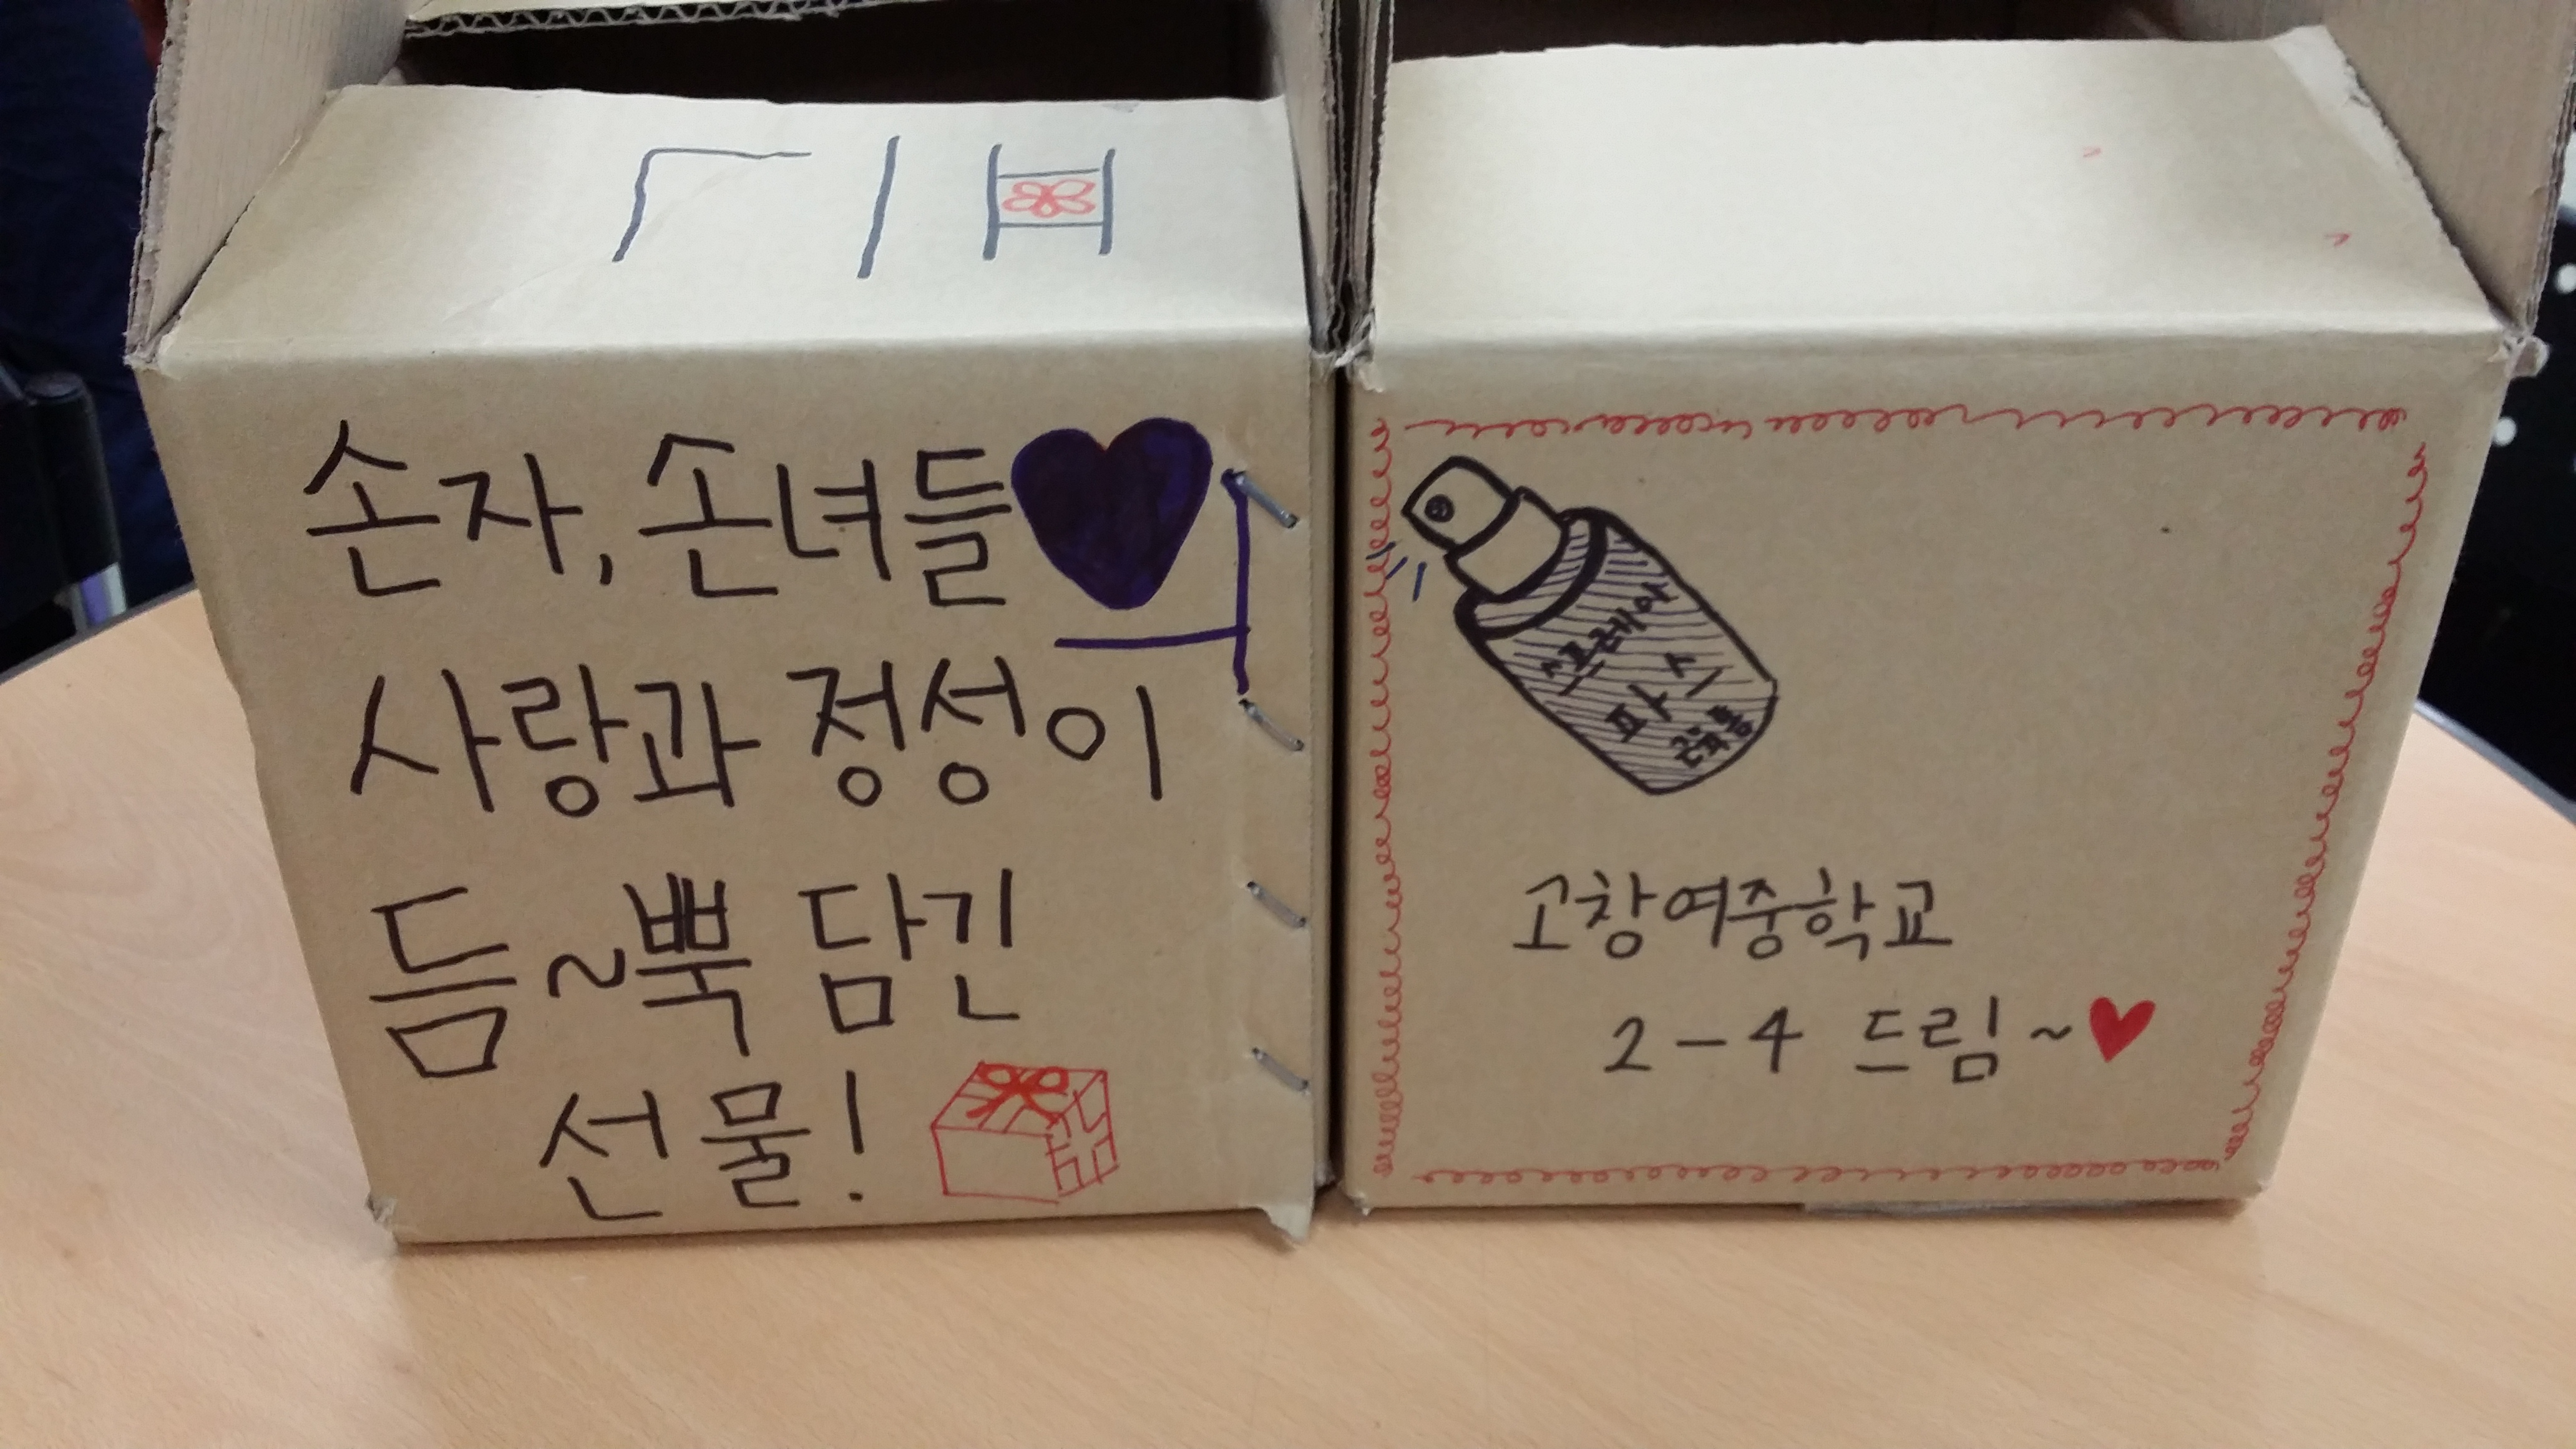 손자, 손녀들의
사랑과 정성이
듬~뿍 담긴
선물!
스프레이
파스
고창여중학교
2-4 드림~♥